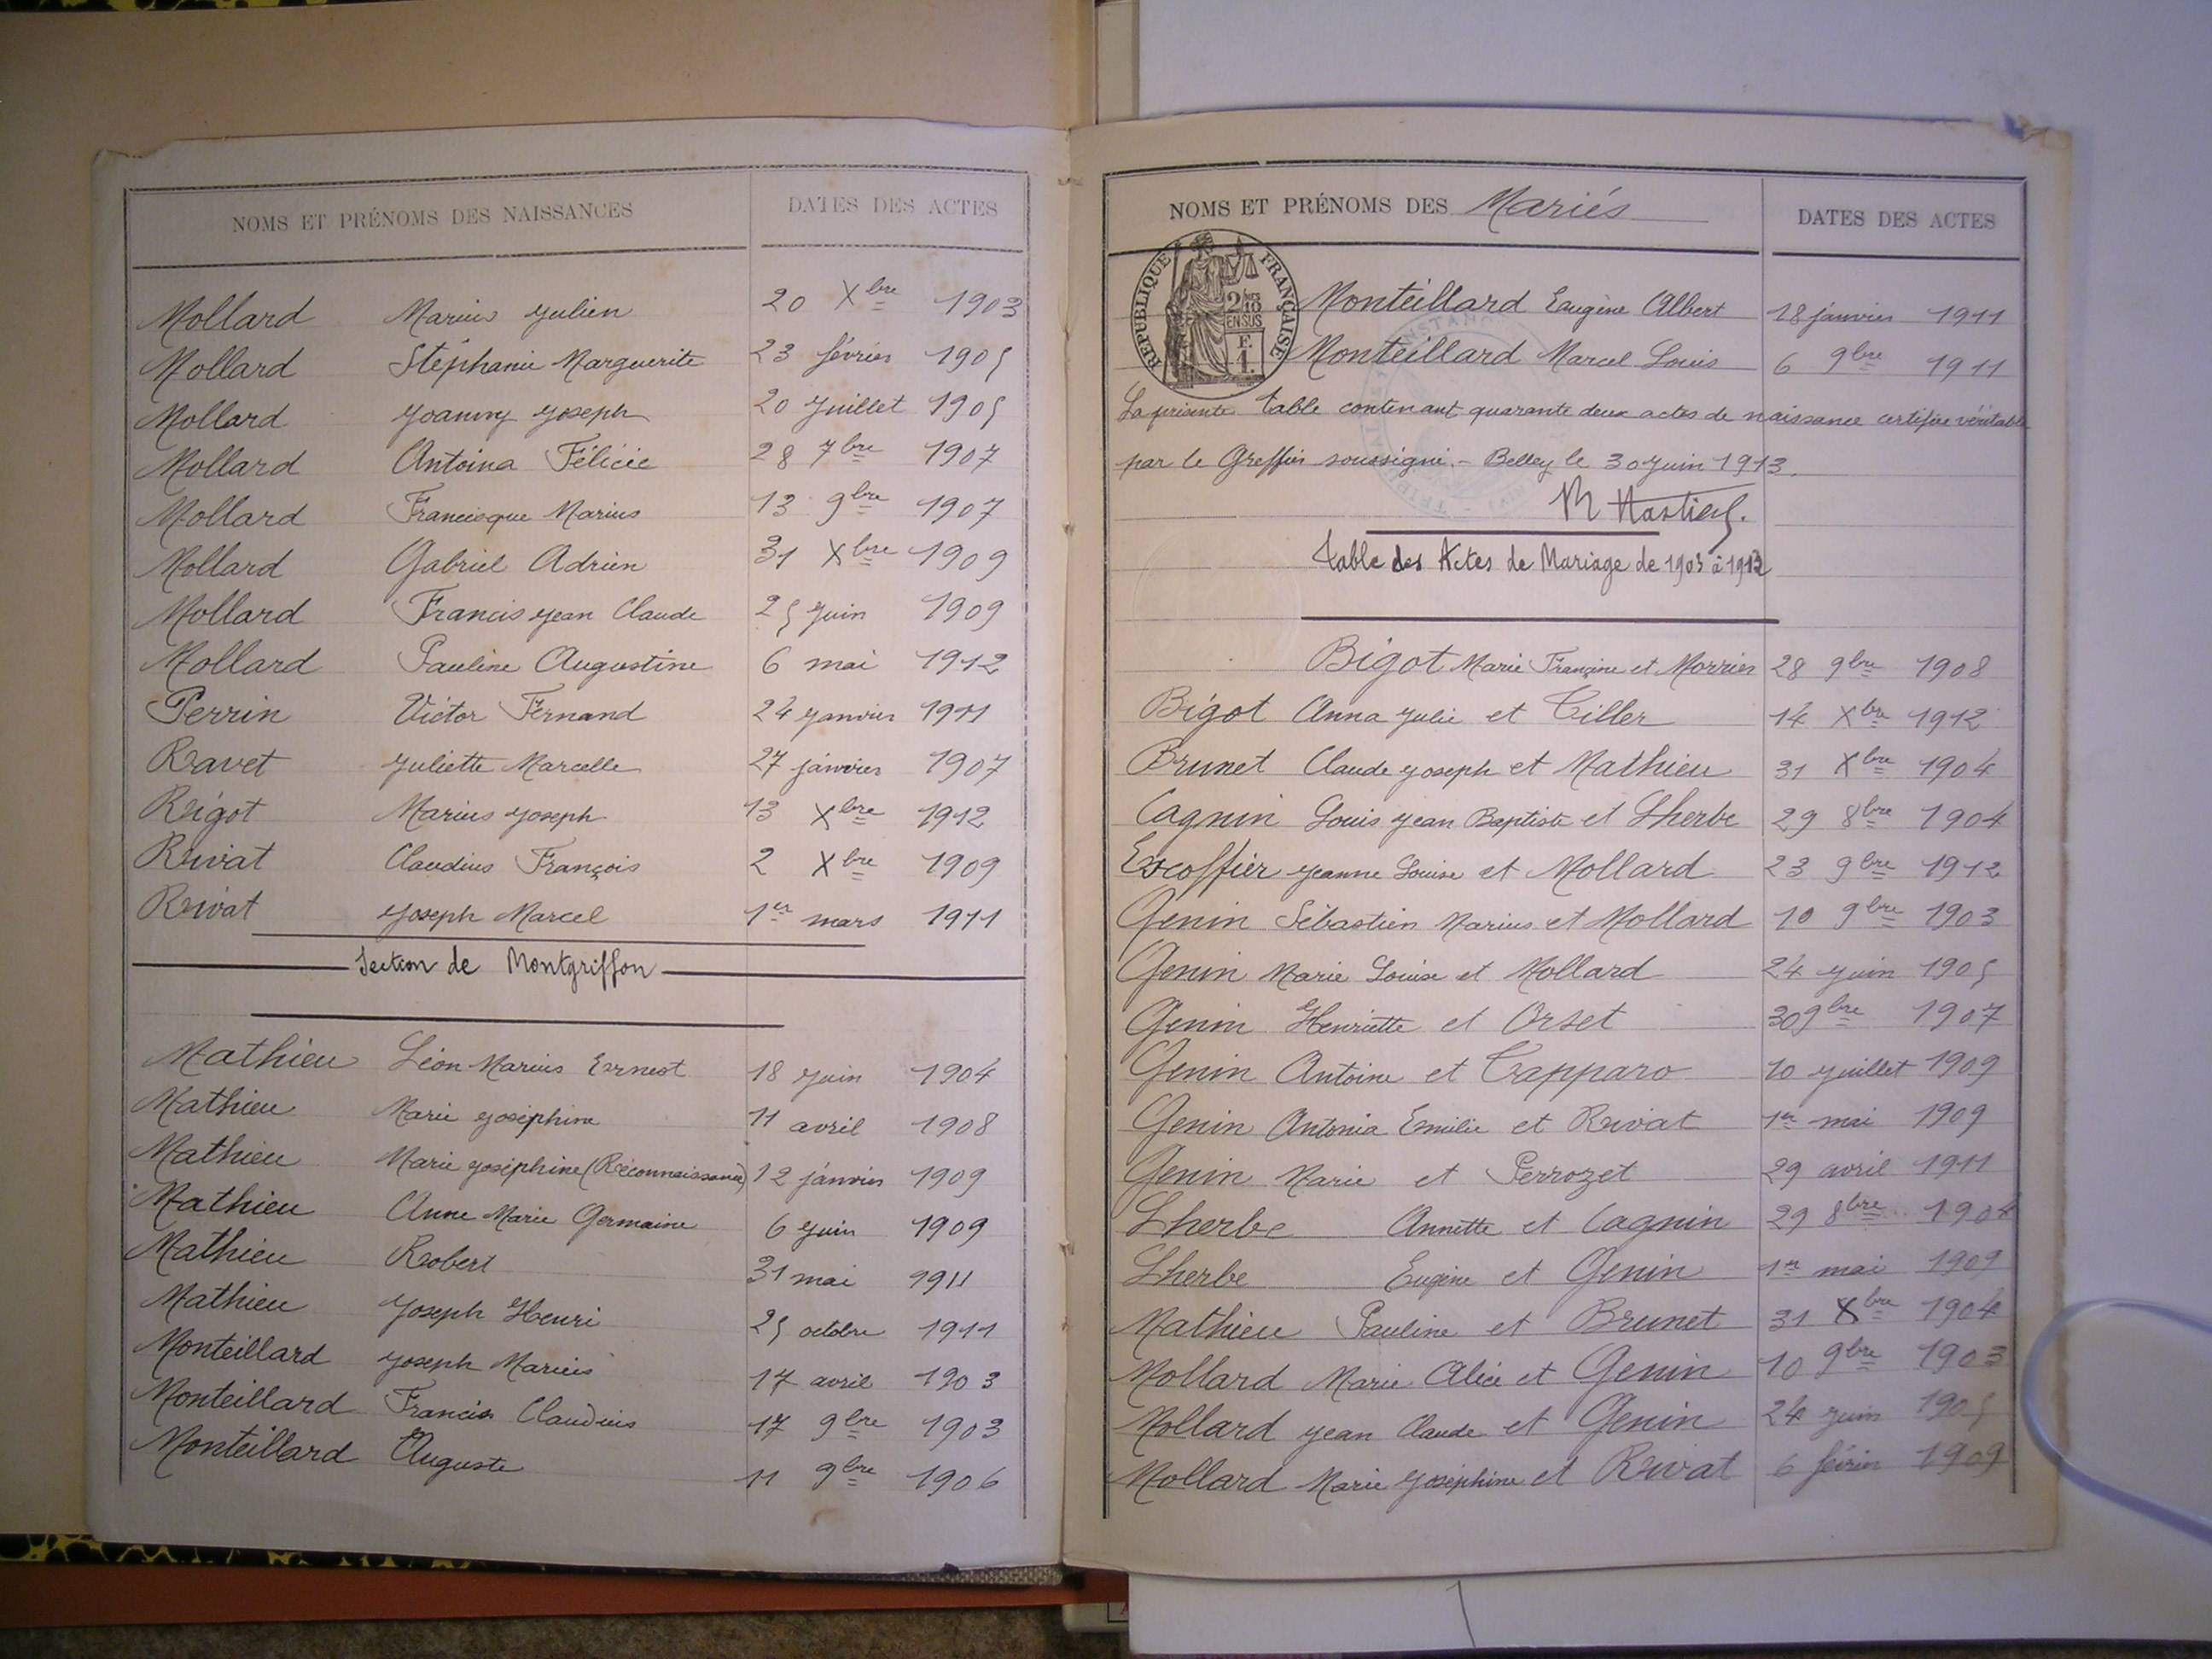 NOMS ET PRÉNOMS DES NAISSANCES DATES DES ACTES
Mollard Marius Julien 20 Xbre 1903
Mollard Stéphanie Marguerite 23 février 1905
Mollard Joanny Joseph 20 Juillet 1905
Mollard Antoina Félicie 28 7bre 1907
Mollard Francisque Marius 13 9bre 1907
Mollard Gabriel Adrien 31 Xbre 1909
Mollard Francis Jean Claude 25 Juin 1909
Mollard Pauline Augustine 6 mai 1912
Perrin Victor Fernand 24 Janvier 1911
Ravet Juliette Marcelle 27 janvier 1907
Rigot Marius Joseph 13 Xbre 1912
Rivat Claudius François 2 Xbre 1909
Rivat Joseph Marcel 1er mars 1911
Section de Montgriffon
Mathieu Léon Marius Ernest 18 Juin 1904
Mathieu Marie Joséphine 11 avril 1908
Mathieu Marie Joséphine (Réconnaissance) 12 janvier 1909
Mathieu Anne Marie Germaine 6 Juin 1909
Mathieu Robert 31 mai 1911
Mathieu Joseph Henri 25 octobre 1911
Monteillard Joseph Marius 17 avril 1903
Monteillard Francis Claudius 17 9bre 1903
Monteillard Auguste 11 9bre 1906
NOMS ET PRÉNOMS DES Mariés DATES DES ACTES
RÉPUBLIQUE FRANÇAISE
2/10
EN SUS
F.
1.
Monteillard Eugène Albert 18 janvier 1911
Monteillard Marcel Louis 6 9bre 1911
La présente table contenant quarante deux actes de naissance certifiée véritable
par le Greffier soussigné.- Belley le 30 Juin 1913.
Table des Actes de Mariage de 1903 à 1912
Bigot Marie Françine et Morrier 28 9bre 1908
Bigot Anna Julie et Tiller 14 Xbre 1912
Brunet Claude Joseph et Mathieu 31 Xbre 1904
Cagnin Louis Jean Baptiste et Lherbe 29 8bre 1904
Excoffier Jeanne Louise et Mollard 23 9bre 1912
Genin Sébastien Marius et Mollard 10 9bre 1903
Genin Marie Louise et Mollard 24 Juin 1905
Genin Henriette et Orset 30 9bre 1907
Genin Antoine et Tapparo 10 Juillet 1909
Genin Antonia Emilie et Rivat 1er mai 1909
Genin Marie et Perrozet 29 avril 1911
Lherbe Annette et Cagnin 29 8bre 1904
Lherbe Eugène et Genin 1er mai 1909
Mathieu Pauline et Brunet 31 Xbre 1904
Mollard Marie Alice et Genin 10 9bre 1903
Mollard Jean Claude et Genin 24 Juin 1905
Mollard Marie Joséphine et Rivat 6 février 1909